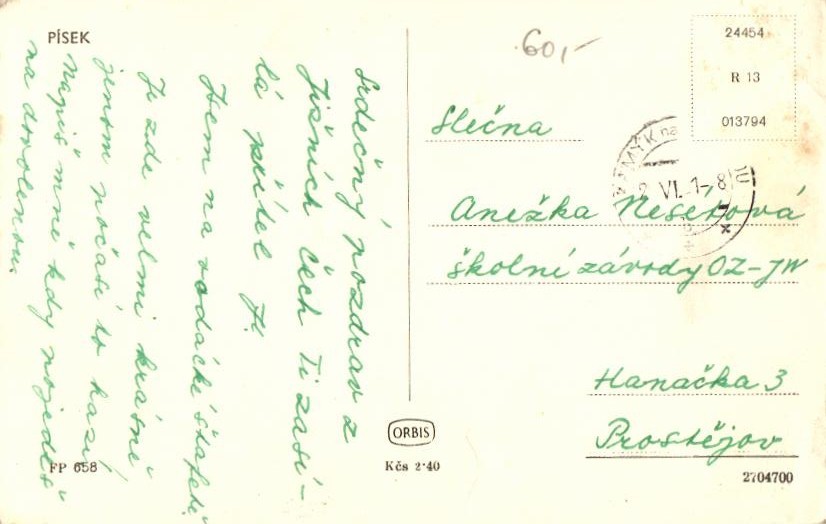 PÍSEK
60,-
24454
R 13
013794
Srdečný pozdrav z
Jižních Čech Ti zasí-
lá přítel J!
Jsem na vodácké štafetě
Je zde velmi krásně
jenom počasí to kazí,
Napiš mně kdy pojedeš
na dovolenou.
Slečna
MÝK na
VI. 1-8
Anežka
školní závody OZ-JW
Hanačka 3
Prostějov
ORBIS
FP 658
Kčs 2·40
2704700